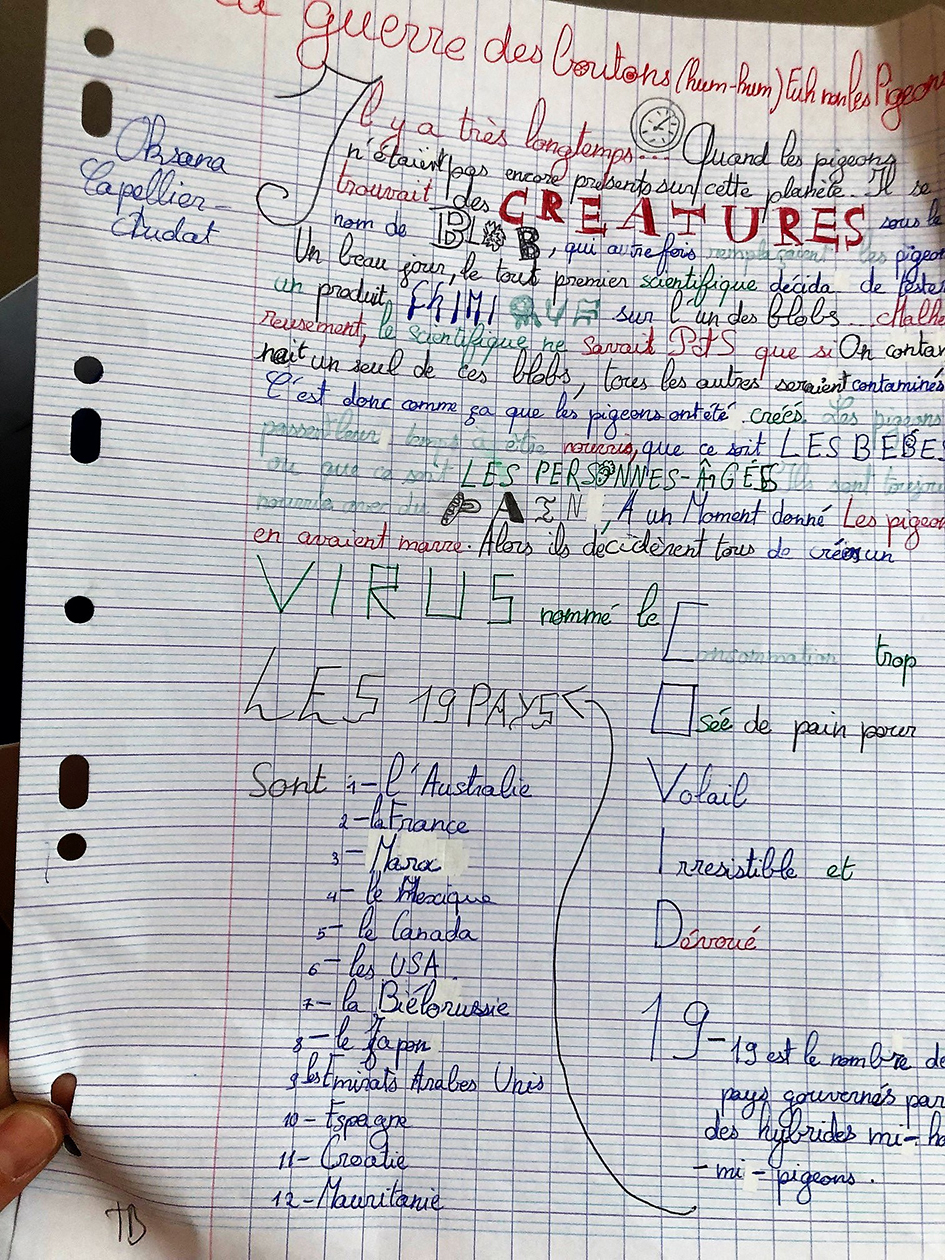 guerre des boutons (hum-hum) Euh non les Pigeons
Oksana
Capellier-
Ciudat
Il y a très longtemps... Quand les pigeons
n'étaient pas encore présents sur cette planète. Il se
trouvait des CREATURES sous le
nom de BLOB, qui autrefois remplaçaient les pigeon
Un beau jour, le tout premier scientifique décida de tester
un produit CHIMIQUE sur l'un des blobs... Malheu
reusement, le scientifique ne savait PAS que si On contam
nait un seul de ces blobs, tous les autres seraient contaminés
C'est donc comme ça que les pigeons ont été créés. Les pigeons
passent leur temps à être nourris, que ce soit LES BEBES
ou que ce soit LES PERSONNES-ÂGÉES Ils sont toujou
nourris avec du PAIN, A un Moment donné Les pigeon
en avaient marre. Alors ils décidèrent tous de créer un
VIRUS nommé le
Consommation trop
Osée de pain pour
Volail
Irresistible et
Dévoué
19-19 est le nombre de
pays gouvernés par
des hybrides mi-ho
-mi-pigeons.
LES 19 PAYS
Sont : 1- l'Australie
2- la France
3- Maroc
4- le Mexique
5- le Canada
6- les USA
7- la Biélorussie
8- le Japon
9 les Emirats Arabes Unis
10- Espagne
11- Croatie
12- Mauritanie
TB